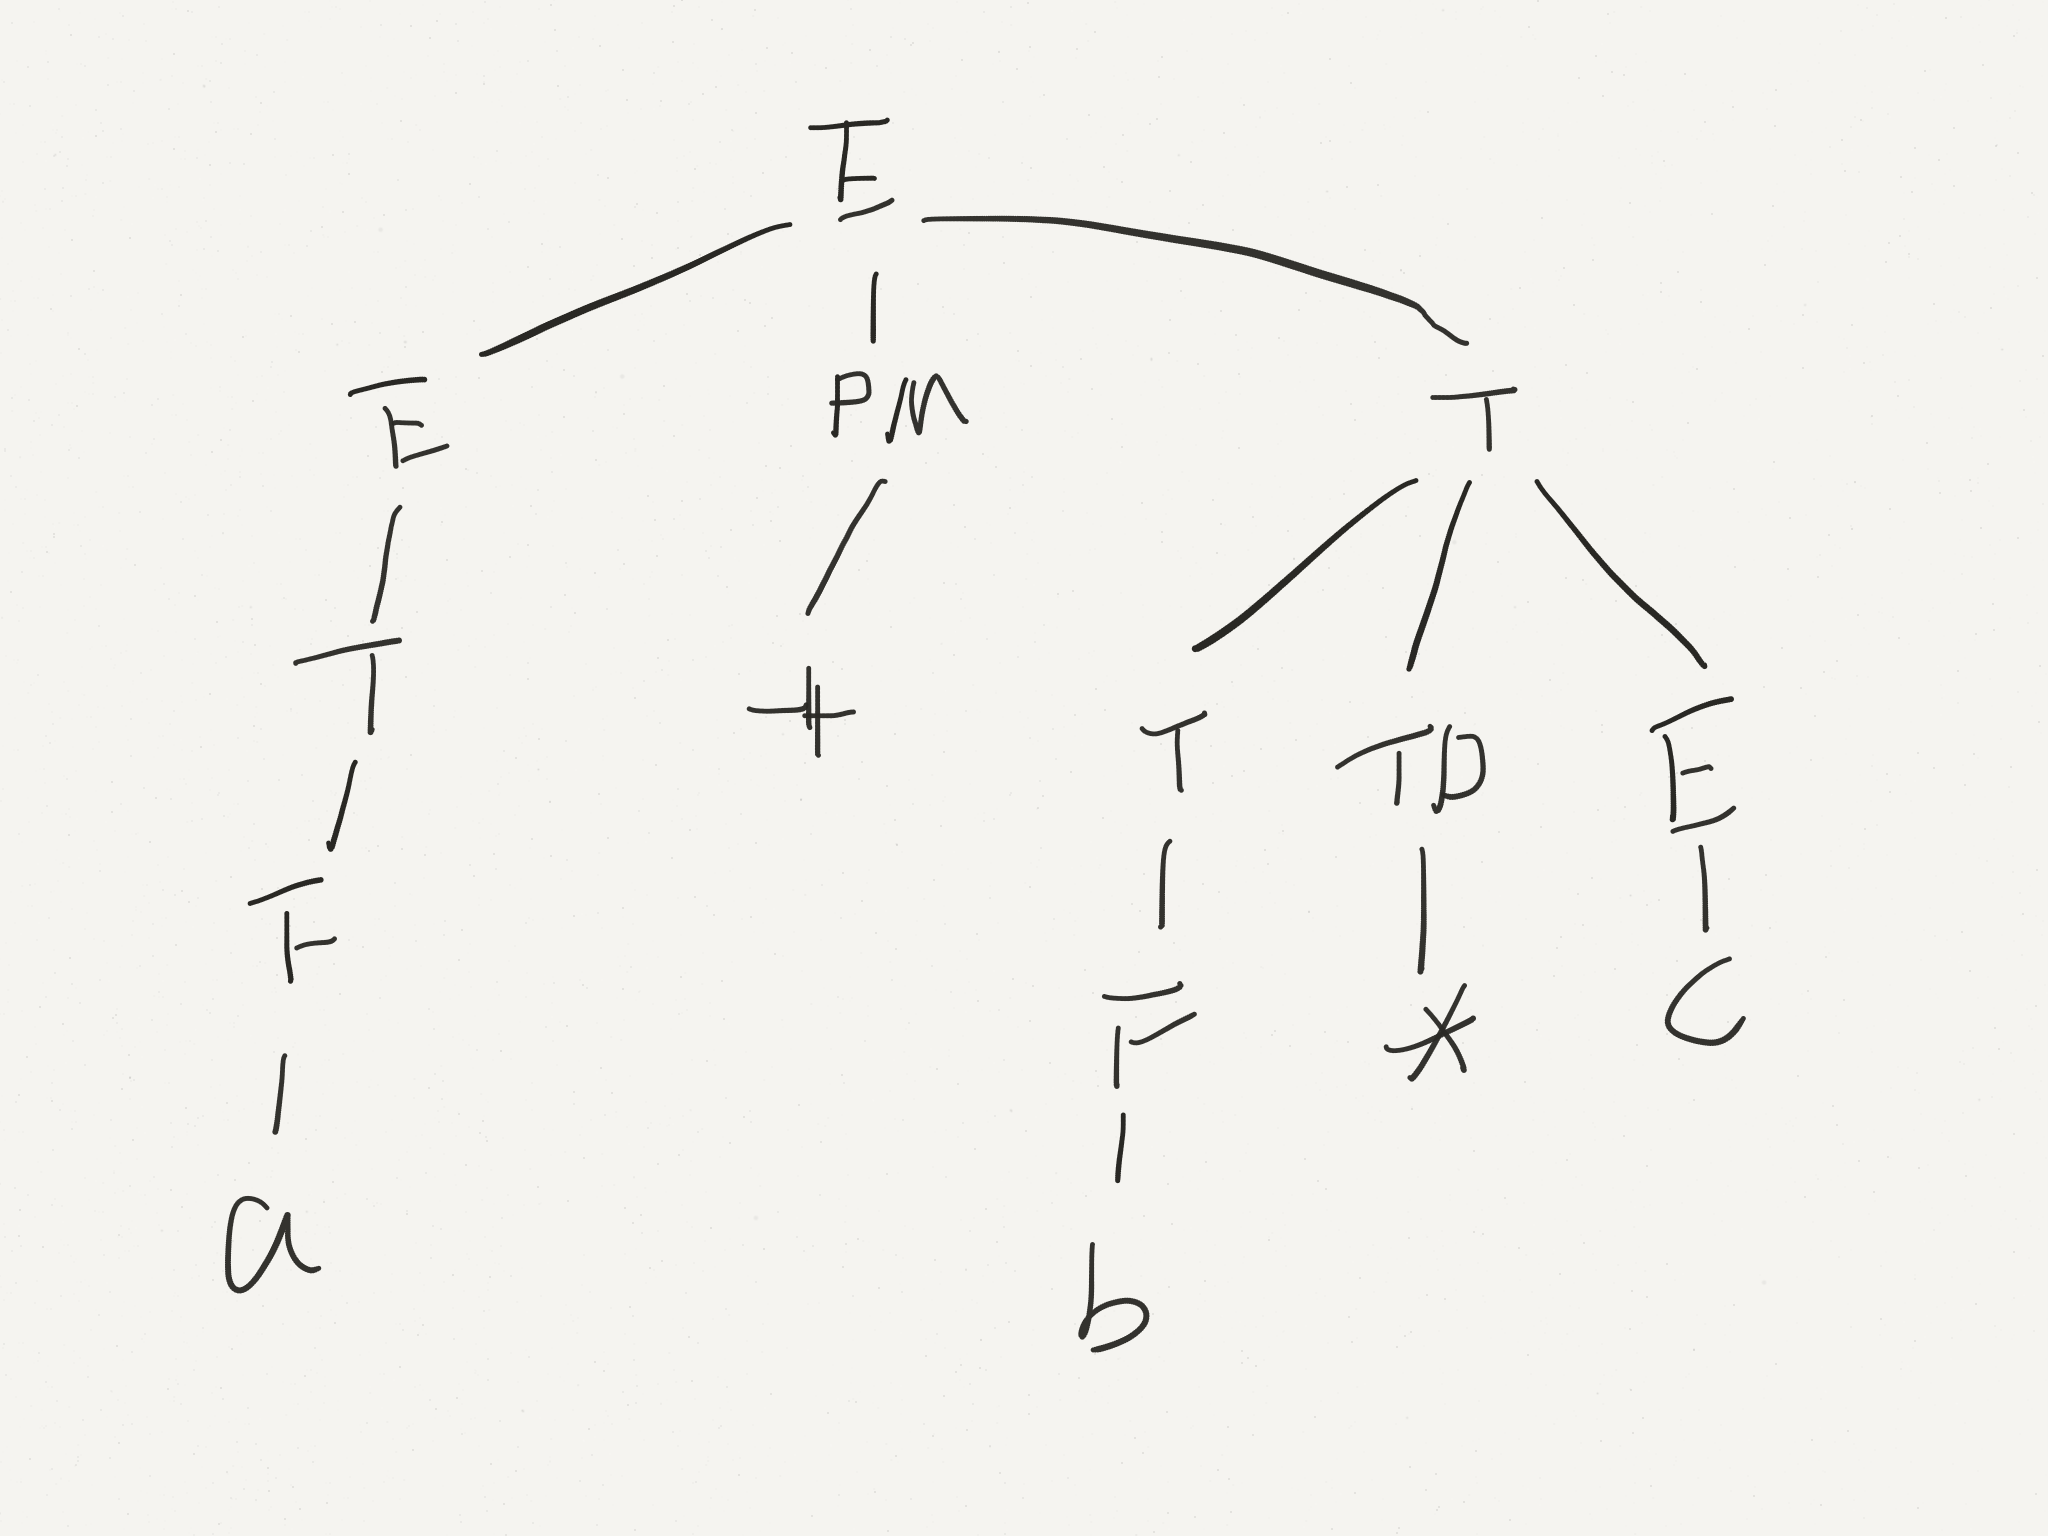 E
E PM T
T + T TD E
F F * C
a b